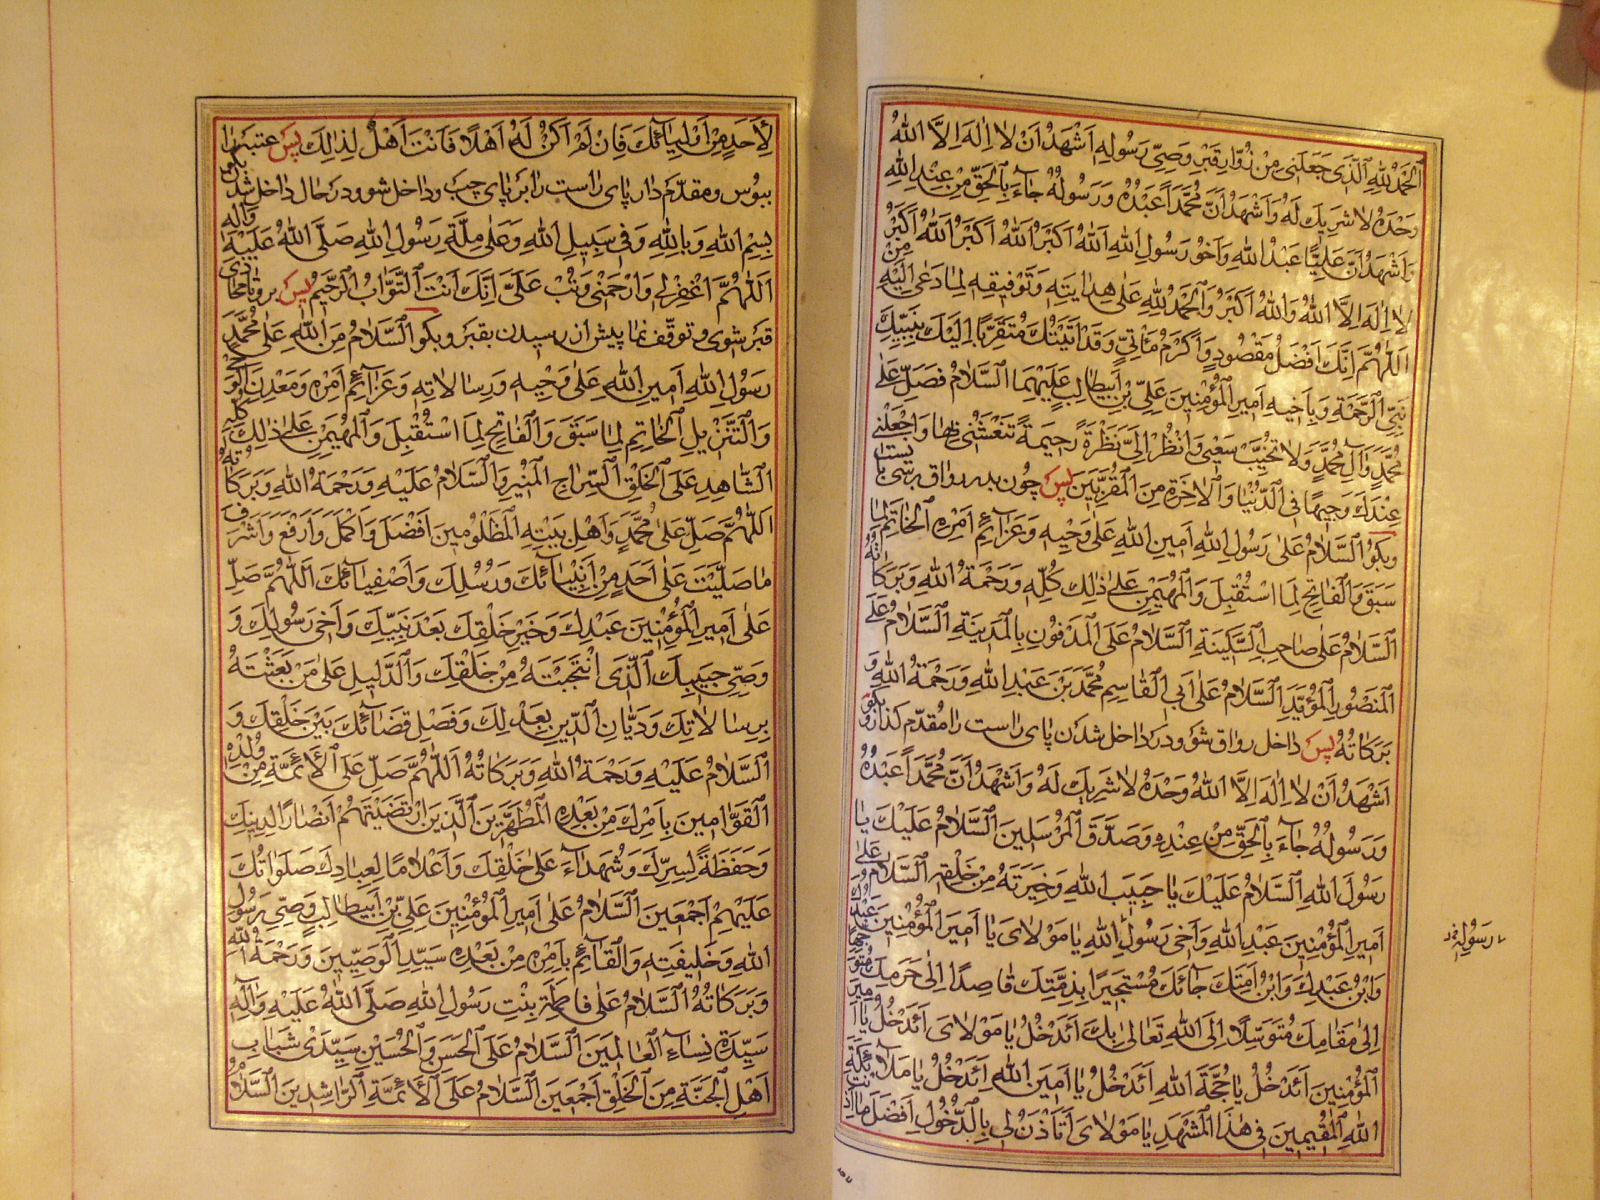 اَلْحَمْدُ لِلّٰهِ الَّذی جَعَلَنی مِنْ زُوّٰارِ قَبْرِ وَصِیِّ رَسُولِهِ اَشْهَدُ اَنْ لٰا اِلٰهَ اِلَّا اللّٰهُ
وَحْدَهُ لٰا شَرِیكَ لَهُ وَاَشْهَدُ اَنَّ مُحَمَّداً عَبْدُهُ وَرَسُولُهُ جٰاءَ بِالْحَقِّ مِنْ عِنْدِ اللّٰهِ
وَاَشْهَدُ اَنَّ عَلِیًّا عَبْدُ اللّٰهِ وَاَخُو رَسُولِ اللّٰهِ اَللّٰهُ اَکْبَرُ اَللّٰهُ اَکْبَرُ اَللّٰهُ اَکْبَرُ
لٰا اِلٰهَ اِلَّا اللّٰهُ وَاللّٰهُ اَکْبَرُ وَالْحَمْدُ لِلّٰهِ عَلیٰ هِدٰایَتِهِ وَتَوْفیقِهِ لِمٰا دَعیٰ اِلَیْهِ مِنْ
اَللّٰهُمَّ اِنَّكَ اَفْضَلُ مَقْصُودٍ وَاَکْرَمُ مَأْتِیٍّ وَقَدْ اَتَیْتُكَ مُتَقَرِّبًا اِلَیْكَ بِنَبِیِّكَ
نَبِیِّ الرَّحْمَةِ وَبِاَخیهِ اَمیرِ الْمُؤْمِنینَ عَلِیِّ بْنِ اَبیطٰالِبٍ عَلَیْهِمَا السَّلٰامُ فَصَلِّ عَلیٰ
مُحَمَّدٍ وَآلِ مُحَمَّدٍ وَلٰا تُخَیِّبْ سَعْیی وَانْظُرْ اِلَیَّ نَظْرَةً رَحیمَةً تَنْعَشُنی بِهٰا وَاجْعَلْنی
عِنْدَكَ وَجیهًا فِی الدُّنْیٰا وَالْآخِرَةِ مِنَ الْمُقَرَّبینَ پس چون بدر رواق برسی بایست
وبگو اَلسَّلٰامُ عَلیٰ رَسُولِ اللّٰهِ اَمینِ اللّٰهِ عَلیٰ وَحْیِهِ وَعَزٰائِمِ اَمْرِهِ الْخٰاتِمِ لِمٰا
سَبَقَ وَالْفٰاتِحِ لِمَا اسْتُقْبِلَ وَالْمُهَیْمِنِ عَلیٰ ذٰلِكَ کُلِّهِ وَرَحْمَةُ اللّٰهِ وَبَرَکٰاتُهُ
اَلسَّلٰامُ عَلیٰ صٰاحِبِ السَّکینَةِ اَلسَّلٰامُ عَلَی الْمَدْفُونِ بِالْمَدینَةِ اَلسَّلٰامُ عَلَی
الْمَنْصُورِ الْمُؤَیَّدِ اَلسَّلٰامُ عَلیٰ اَبِی الْقٰاسِمِ مُحَمَّدِ بْنِ عَبْدِ اللّٰهِ وَرَحْمَةُ اللّٰهِ وَ
بَرَکٰاتُهُ پس داخل رواق شو ودرکداخل شدن پای راست را مقدم کذار و بگو
اَشْهَدُ اَنْ لٰا اِلٰهَ اِلَّا اللّٰهُ وَحْدَهُ لٰا شَرِیكَ لَهُ وَاَشْهَدُ اَنَّ مُحَمَّداً عَبْدُهُ
وَرَسُولُهُ جٰاءَ بِالْحَقِّ مِنْ عِنْدِهِ وَصَدَّقَ الْمُرْسَلینَ اَلسَّلٰامُ عَلَیْكَ یٰا
رَسُولَ اللّٰهِ اَلسَّلٰامُ عَلَیْكَ یٰا حَبیبَ اللّٰهِ وَخِیَرَتَهُ مِنْ خَلْقِهِ اَلسَّلٰامُ عَلیٰ
اَمیرِ الْمُؤْمِنینَ عَبْدِ اللّٰهِ وَاَخی رَسُولِ اللّٰهِ یٰا مَوْلٰایَ یٰا اَمیرَ الْمُؤْمِنینَ عَبْدُكَ
وَابْنُ عَبْدِكَ وَابْنُ اَمَتِكَ جٰائَكَ مُسْتَجیرًا بِذِمَّتِكَ قٰاصِدًا اِلیٰ حَرَمِكَ
اِلیٰ مَقٰامِكَ مُتَوَسِّلًا اِلَی اللّٰهِ تَعٰالیٰ بِكَ اَئَدْخُلُ یٰا مَوْلٰایَ اَئَدْخُلُ یٰا اَمیرَ
الْمُؤْمِنینَ اَئَدْخُلُ یٰا حُجَّةَ اللّٰهِ اَئَدْخُلُ یٰا اَمینَ اللّٰهِ اَئَدْخُلُ یٰا مَلٰائِکَةَ
اللّٰهِ الْمُقیمینَ فی هٰذَا الْمَشْهَدِ یٰا مَوْلٰایَ اَتَأْذَنُ لی بِالدُّخُولِ اَفْضَلَ مٰا اَذِنْتَ
رسوله
لِأَحَدٍ مِنْ اَوْلِیٰائِكَ فَاِنْ لَمْ اَکُنْ لَهُ اَهْلًا فَاَنْتَ اَهْلٌ لِذٰلِكَ پس عتبه را
ببوس ومقدّم دار پای راست را بر پای چپ وداخل شو ودر حال داخل شدن بگو
بِسْمِ اللّٰهِ وَبِاللّٰهِ وَفی سَبیلِ اللّٰهِ وَعَلیٰ مِلَّةِ رَسُولِ اللّٰهِ صَلَّی اللّٰهُ عَلَیْهِ وَآلِهِ
اَللّٰهُمَّ اغْفِرْ لی وَارْحَمْنی وَتُبْ عَلَیَّ اِنَّكَ اَنْتَ التَّوّٰابُ الرَّحیمُ پس برو تا محاذی
قبر شوی و توقّف نما پیش از رسیدن بقبر وبگو اَلسَّلٰامُ مِنَ اللّٰهِ عَلیٰ مُحَمَّدٍ
رَسُولِ اللّٰهِ اَمینِ اللّٰهِ عَلیٰ وَحْیِهِ وَرِسٰالٰاتِهِ وَعَزٰائِمِ اَمْرِهِ وَمَعْدِنِ الْوَحْیِ
وَالتَّنْزیلِ الْخٰاتِمِ لِمٰا سَبَقَ وَالْفٰاتِحِ لِمَا اسْتُقْبِلَ وَالْمُهَیْمِنِ عَلیٰ ذٰلِكَ کُلِّهِ
الشّٰاهِدِ عَلَی الْخَلْقِ السِّرٰاجِ الْمُنیرِ وَالسَّلٰامُ عَلَیْهِ وَرَحْمَةُ اللّٰهِ وَبَرَکٰاتُهُ
اَللّٰهُمَّ صَلِّ عَلیٰ مُحَمَّدٍ وَاَهْلِ بَیْتِهِ الْمَظْلُومینَ اَفْضَلَ وَاَکْمَلَ وَاَرْفَعَ وَاَشْرَفَ
مٰا صَلَّیْتَ عَلیٰ اَحَدٍ مِنْ اَنْبِیٰائِكَ وَرُسُلِكَ وَاَصْفِیٰائِكَ اَللّٰهُمَّ صَلِّ
عَلیٰ اَمیرِ الْمُؤْمِنینَ عَبْدِكَ وَخَیْرِ خَلْقِكَ بَعْدَ نَبِیِّكَ وَاَخی رَسُولِكَ وَ
وَصِیِّ حَبیبِكَ الَّذی انْتَجَبْتَهُ مِنْ خَلْقِكَ وَالدَّلیلِ عَلیٰ مَنْ بَعَثْتَهُ
بِرِسٰالٰاتِكَ وَدَیّٰانِ الدّینِ بِعَدْلِكَ وَفَصْلِ قَضٰائِكَ بَیْنَ خَلْقِكَ وَ
السَّلٰامُ عَلَیْهِ وَرَحْمَةُ اللّٰهِ وَبَرَکٰاتُهُ اَللّٰهُمَّ صَلِّ عَلَی الْاَئِمَّةِ مِنْ وُلْدِهِ
الْقَوّٰامینَ بِاَمْرِكَ مِنْ بَعْدِهِ الْمُطَهَّرینَ الَّذینَ ارْتَضَیْتَهُمْ اَنْصٰارًا لِدینِكَ
وَحَفَظَةً لِسِرِّكَ وَشُهَدٰاءَ عَلیٰ خَلْقِكَ وَاَعْلٰامًا لِعِبٰادِكَ صَلَوٰاتُكَ
عَلَیْهِمْ اَجْمَعینَ اَلسَّلٰامُ عَلیٰ اَمیرِ الْمُؤْمِنینَ عَلِیِّ بْنِ اَبیطٰالِبٍ وَصِیِّ رَسُولِ
اللّٰهِ وَخَلیفَتِهِ وَالْقٰائِمِ بِاَمْرِهِ مِنْ بَعْدِهِ سَیِّدِ الْوَصِیّینَ وَرَحْمَةُ اللّٰهِ
وَبَرَکٰاتُهُ اَلسَّلٰامُ عَلیٰ فٰاطِمَةَ بِنْتِ رَسُولِ اللّٰهِ صَلَّی اللّٰهُ عَلَیْهِ وَآلِهِ
سَیِّدَةِ نِسٰاءِ الْعٰالَمینَ اَلسَّلٰامُ عَلَی الْحَسَنِ وَالْحُسَیْنِ سَیِّدَیْ شَبٰابِ
اَهْلِ الْجَنَّةِ مِنَ الْخَلْقِ اَجْمَعینَ اَلسَّلٰامُ عَلَی الْاَئِمَّةِ الرّٰاشِدینَ اَلسَّلٰامُ